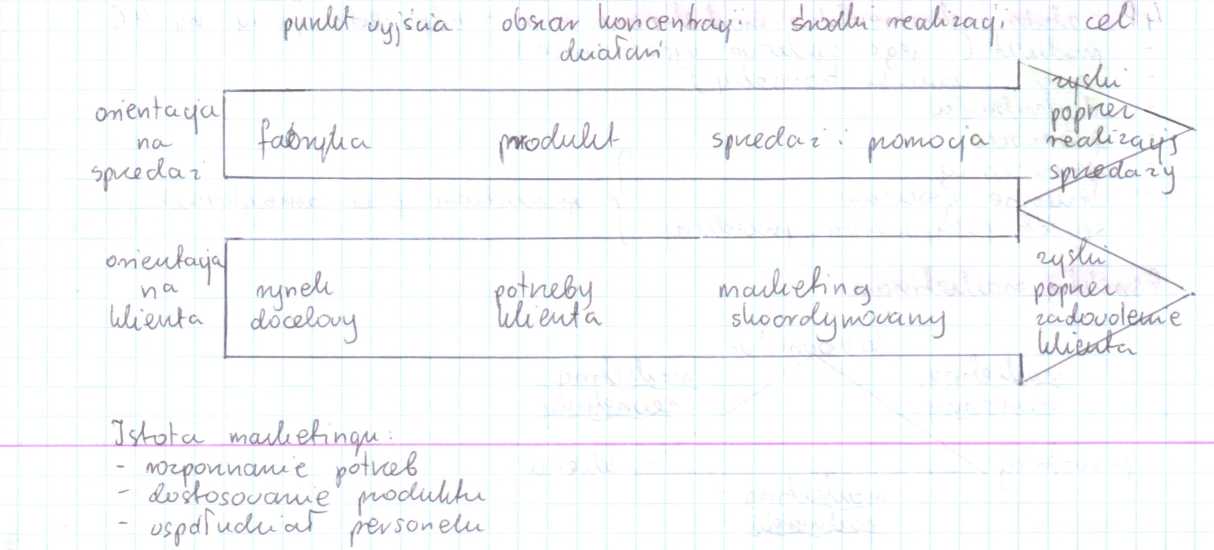 punkt wyjścia obszar koncentracji środki realizacji cel
działań
orientacja
na
sprzedaż
fabryka produkt sprzedaż i promocja
zyski
poprzez
realizację
sprzedaży
orientacja
na
klienta
rynek potrzeby marketing
docelowy klienta skoordynowany
zyski
poprzez
zadowolenie
klienta
Istota marketingu:
- rozpoznanie potrzeb
- dostosowanie produktu
- współudział personelu